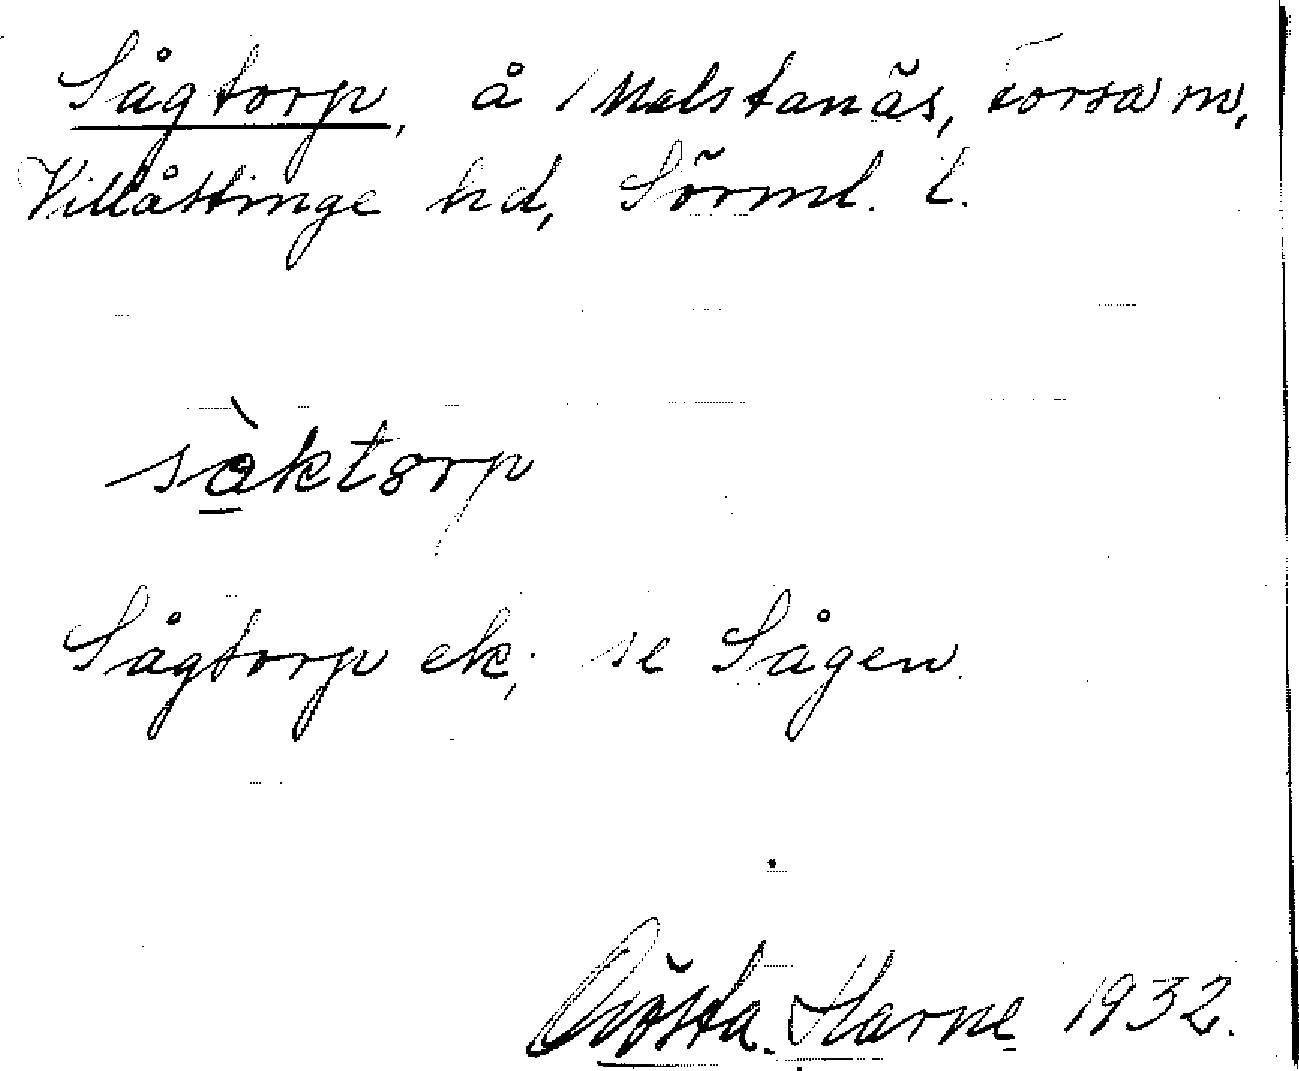 Sågtorp, å Malstanäs, Forsa sn,
Villåttinge hd, Sörml. l.
sàktorp
Sågtorp ek; se Sågen.
Gösta Harne 1932.